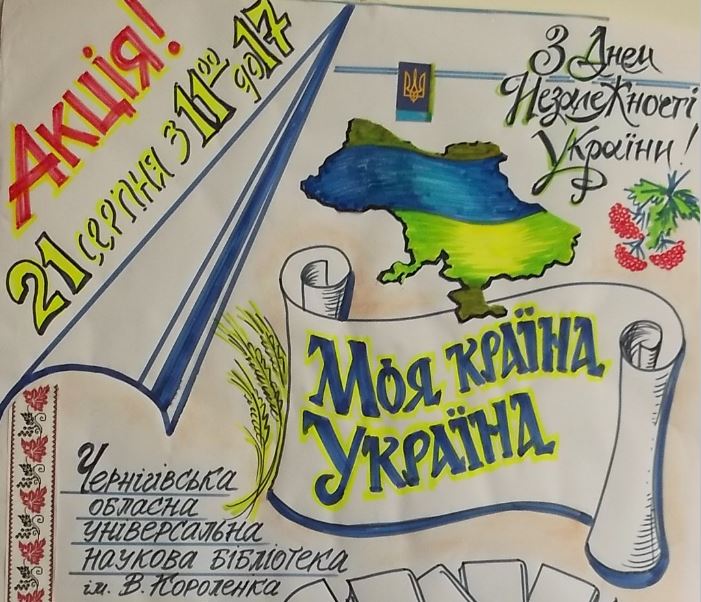 Акція!
21 серпня з 11⁰⁰ до 17
З Днем
Незалежності
України!
Моя країна
Україна
Чернігівська
обласна
універсальна
наукова бібліотека
ім. В. Короленка